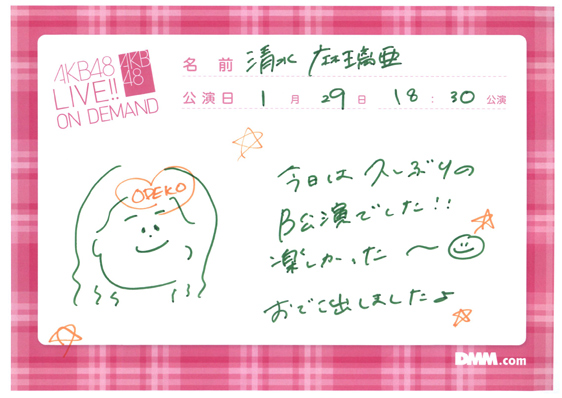 AKB48
LIVE!!
ON DEMAND
AKB
48
名前 清水 麻璃亜
公演日 1月29日 18:30公演
ODEKO
今日は久しぶりの
B公演でした!!
楽しかった〜
おでこ出しました♪
DMM.com